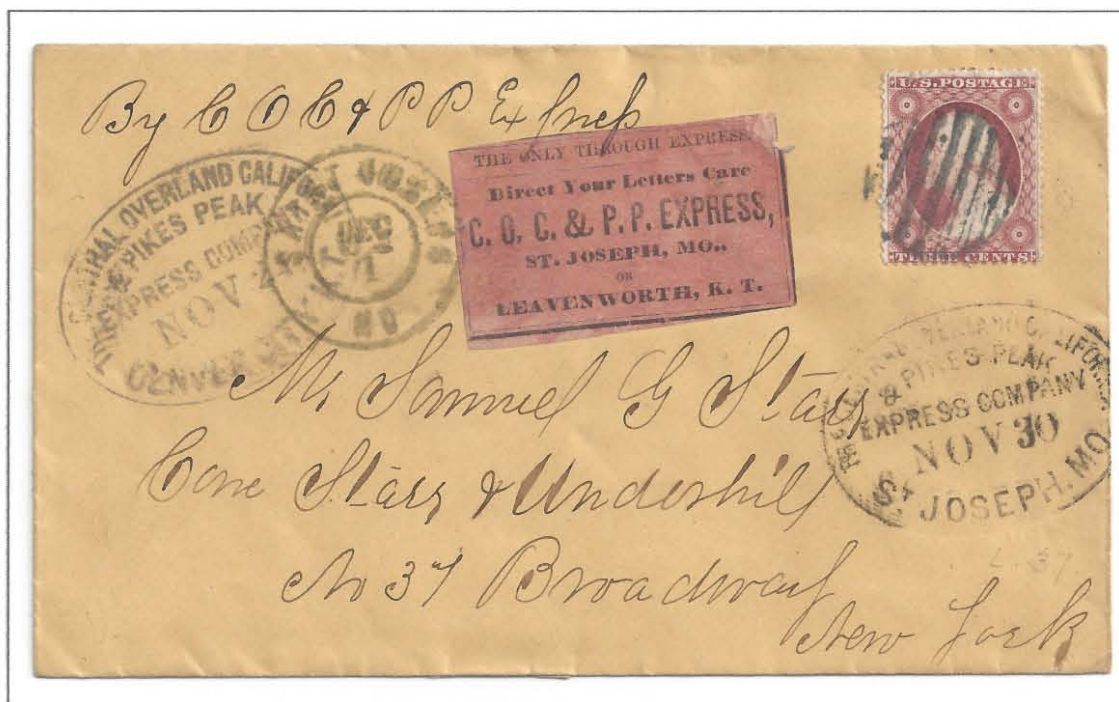 By C O C & P P Express
CENTRAL OVERLAND CALIFOR
PIKES PEAK
EXPRESS COMPANY
NOV
DENVER CITY
SAINT JOSEPH
DEC
1
MO
THE ONLY THROUGH EXPRESS.
Direct Your Letters Care
C. O. C. & P. P. EXPRESS,
ST. JOSEPH, MO.,
OR
LEAVENWORTH, K. T.
U.S. POSTAGE
THREE CENTS
CALIFORNIA
& PIKES PEAK
EXPRESS COMPANY
NOV 30
ST JOSEPH, MO.
Mr Samuel G Starr
Care Starr & Underhill
No 37 Broadway
New York